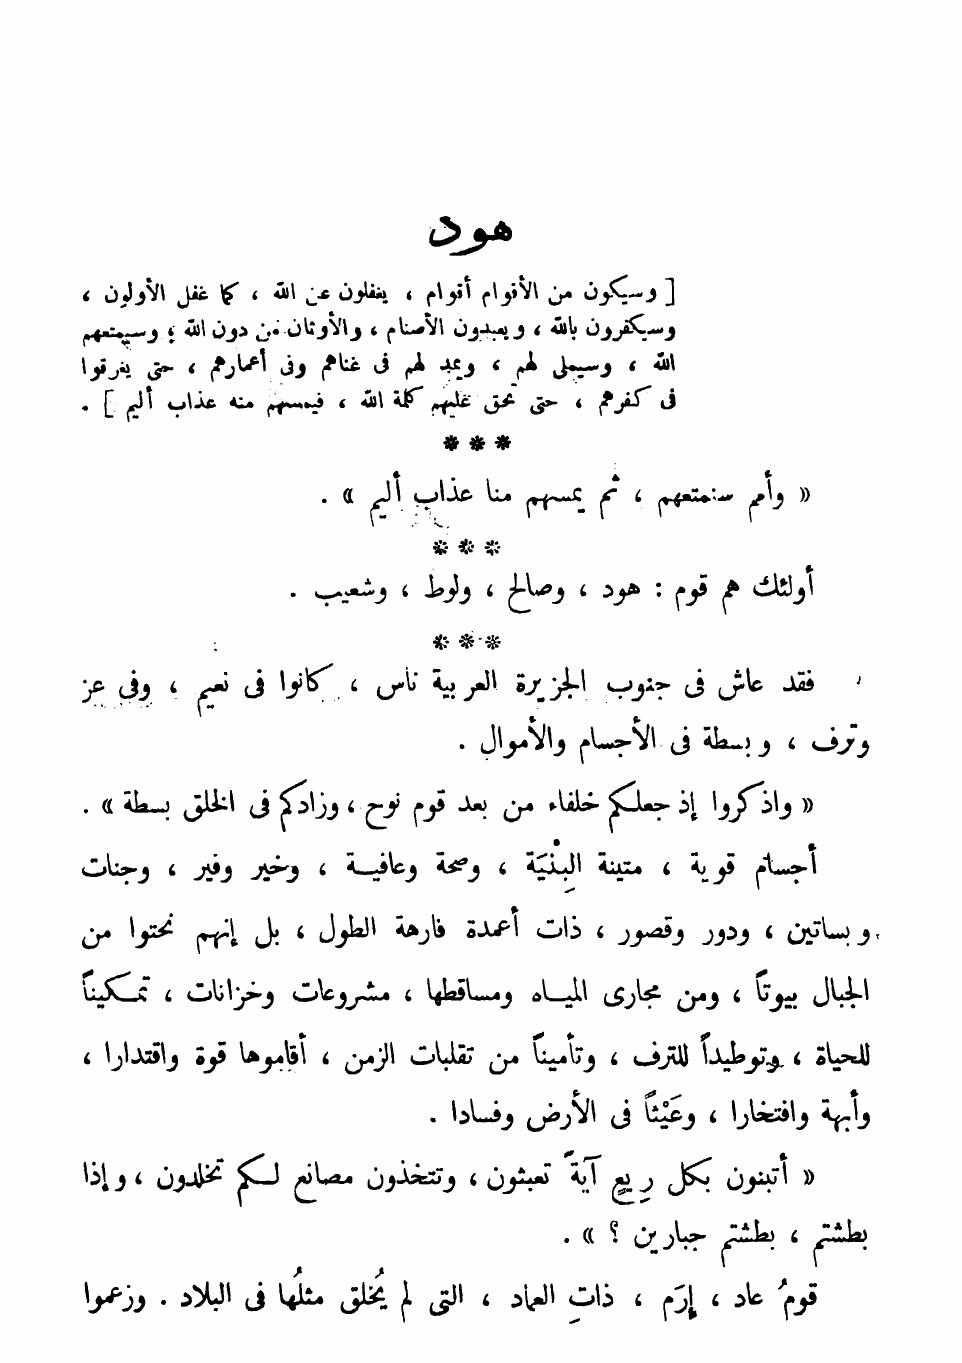 هود
[ وسيكون من الأقوام أقوام ، يغفلون عن الله ، كما غفل الأولون ،
وسيكفرون بالله ، ويعبدون الأصنام ، والأوثان من دون الله ؛ وسيمتعهم
الله ، وسيملى لهم ، ويمد لهم فى غناهم وفى أعمارهم ، حتى يغرقوا
فى كفرهم ، حتى تحق عليهم كلمة الله ، فيمسهم منه عذاب أليم ] .
***
« وأمم سنمتعهم ، ثم يمسهم منا عذاب أليم » .
***
أولئك هم قوم : هود ، وصالح ، ولوط ، وشعيب .
***
فقد عاش فى جنوب الجزيرة العربية ناس ، كانوا فى نعيم ، وفى عز
وترف ، وبسطة فى الأجسام والأموال .
« واذكروا إذ جعلكم خلفاء من بعد قوم نوح ، وزادكم فى الخلق بسطة » .
أجسام قوية ، متينة البِنْيَة ، وصحة وعافية ، وخير وفير ، وجنات
وبساتين ، ودور وقصور ، ذات أعمدة فارهة الطول ، بل إنهم نحتوا من
الجبال بيوتاً ، ومن مجارى المياه ومساقطها ، مشروعات وخزانات ، تمكيناً
للحياة ، وتوطيداً للترف ، وتأميناً من تقلبات الزمن ، أقاموها قوة واقتدارا ،
وأبهة وافتخارا ، وعَيْثاً فى الأرض وفسادا .
« أتبنون بكل رِيعٍ آيةً تعبثون ، وتتخذون مصانع لكم تخلدون ، وإذا
بطشتم ، بطشتم جبارين ؟ » .
قومُ عاد ، إرَم ، ذاتِ العماد ، التى لم يُخلق مثلُها فى البلاد . وزعموا